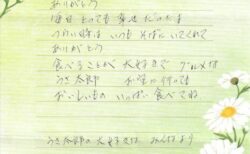 ありがとう
毎日 とっても 幸せ だったよ
つらい時は いつも そばに いてくれて
ありがとう
食べることが 大好きで グルメな
うさ太郎 お空の
おいしいもの いっぱい 食べてね
うさ太郎の 大好きな みんなより